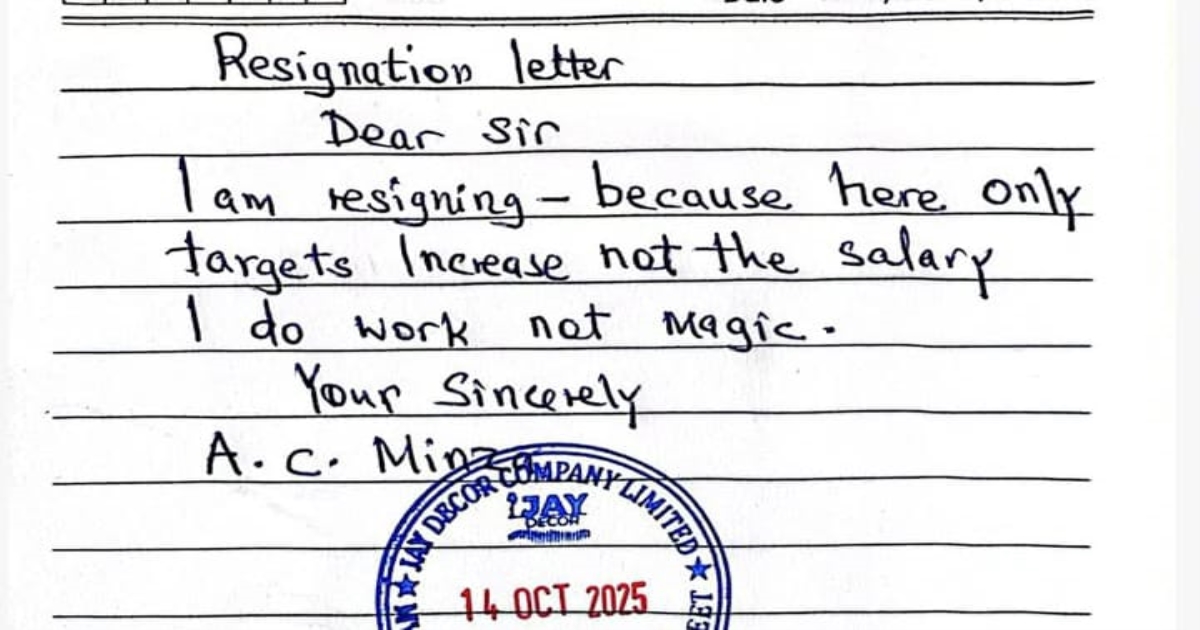 Resignation letter
Dear Sir
I am resigning – because here only
targets Increase not the salary
I do work not Magic.
Your Sincerely
A. C. Minza
JAY DECOR COMPANY LIMITED
JAY
DECOR
14 OCT 2025